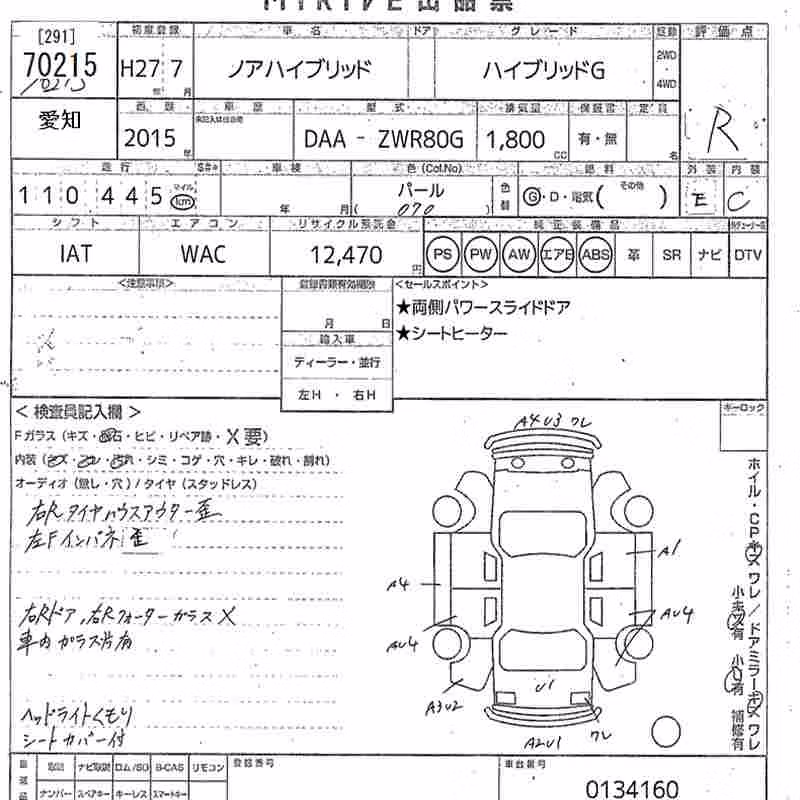 MIRIVE出品票
[291]
70215
10215
初度登録
H27 7
年 月
車名
ノアハイブリッド
ドア
グレード
ハイブリッドG
駆動
2WD
・
4WD
評価点
R
愛知
西暦
2015
年
車歴
未記入は自家用
型式
DAA - ZWR80G
排気量
1,800
CC
保証書
有・無
定員
名
走行
110,445
マイル
km
S#*
車検
年 月
色(Col.No)
パール
( 070 )
色替
燃料
G・D・電気( その他 )
外装
E
内装
C
シフト
IAT
エアコン
WAC
リサイクル預託金
12,470
円
純正装備品
PS PW AW エアB ABS 革 SR ナビ DTV
<注意事項>
登録書類有効期限
月 日
輸入車
ディーラー・並行
左H ・ 右H
<セールスポイント>
★両側パワースライドドア
★シートヒーター
<検査員記入欄>
Fガラス(キズ・飛石・ヒビ・リペア跡・X要)
内装(キズ・スレ・汚れ・シミ・コゲ・穴・キレ・破れ・割れ)
オーディオ(無し・穴)/タイヤ(スタッドレス)
右Rタイヤハウスアウター歪
左Fインパネ歪
右Rドア,右Rクォーターガラス X
車内ガラス片有
ヘッドライトくもり
シートカバー付
キーロック
A4U3 ワレ
A1
A4
AU4
AU4
A3U2
U1
A2U1
ワレ
ホイル・CPキズワレ/ドアミラーキズワレ
小キズ有 小凹有 補修有
記録 ナビ取説 ロム/SD B-CAS リモコン
ナンバー スペアキー キーレス スマートキー
登録番号
車台番号
0134160